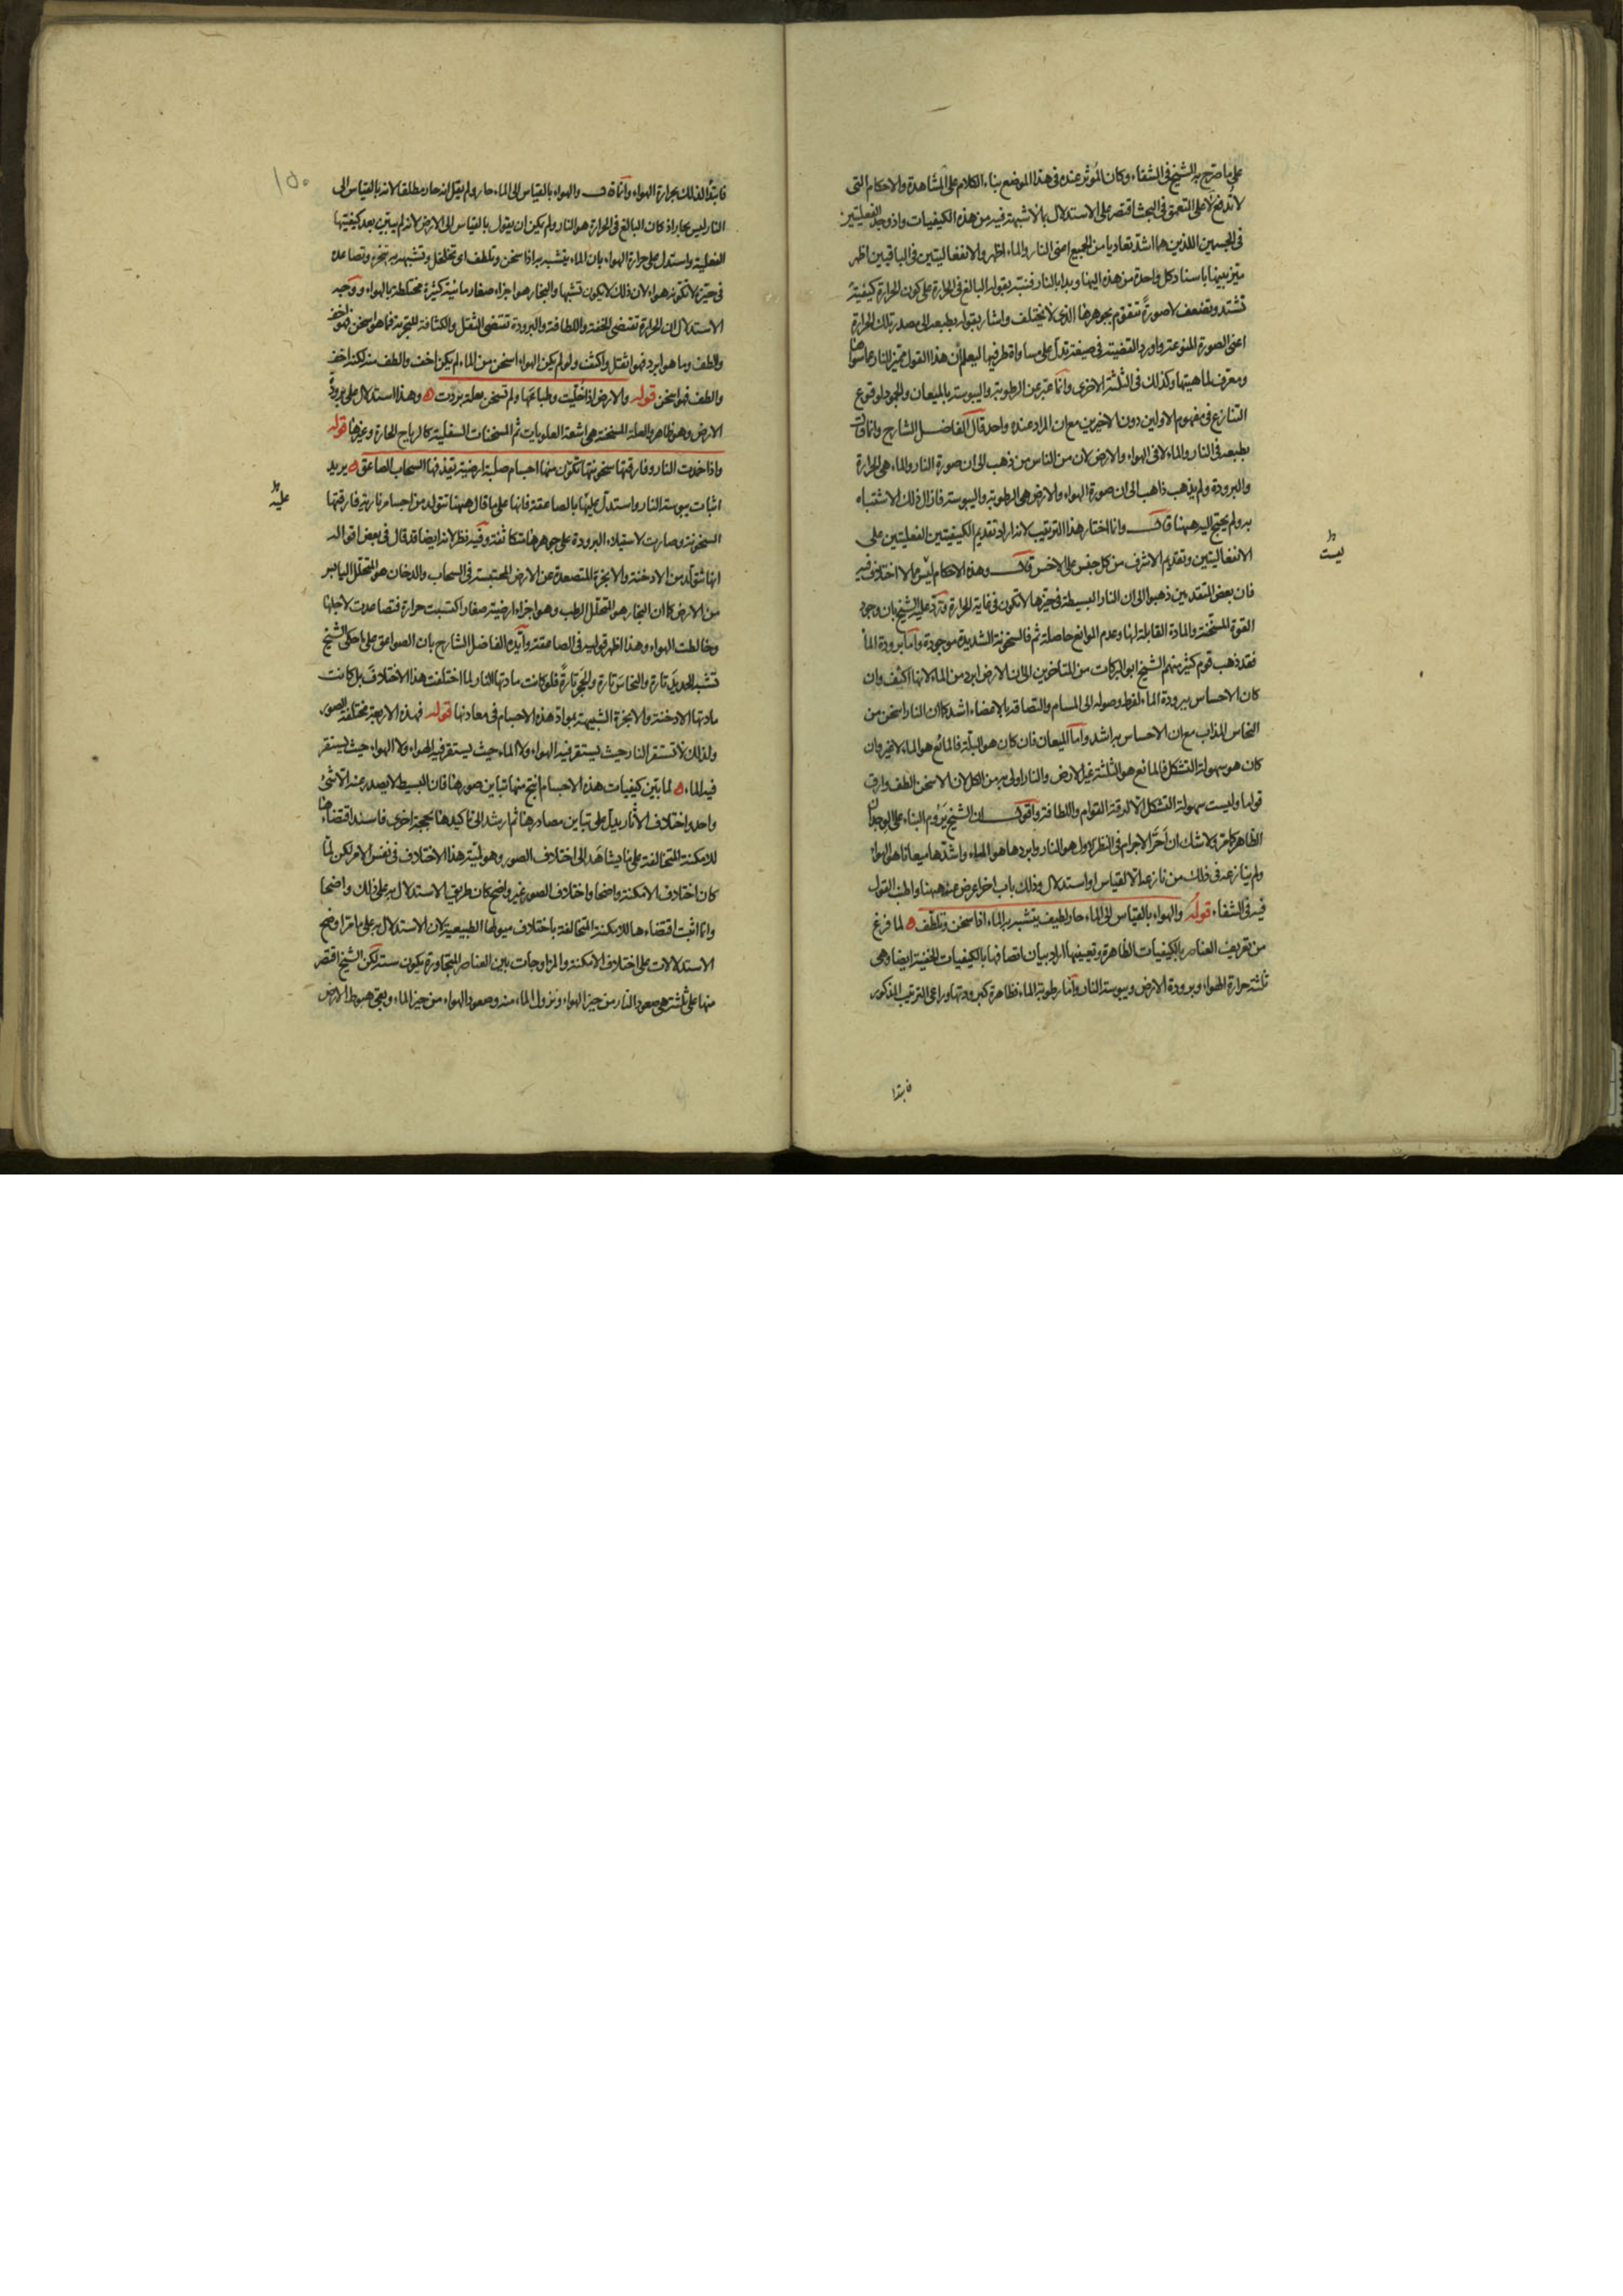 على ما صرح به الشيخ فى الشفاء وكان المؤثر عنده فى هذا الموضع بناء الكلام على المشاهدة والاحكام التى
لا تدفع لا على التعمق فى البحث اقتصر على الاستدلال بالاشبهة فيه من هذه الكيفيات واذ وجد الفعليتين
فى الجسمين اللذين هما اشد تعاديا من الجميع اعنى النار والماء اظهر والانفعاليتين فى الباقيين اظهر
ميز بينها باسناد كل واحدة من هذه اليها وبدا بالنار فنبه بقوله البالغ فى الحرارة على كون الحرارة كيفية
تشتد وتضعف لا صورة تتقوم بجوهرها الذى لا يختلف واشار بقوله بطبعه الى مصدر تلك الحرارة
اعنى الصورة المنوعة واورد القضية فى صيغة تدل على مساواة طرفيها ليعلم أن هذا القول مميز للنار عما سواها
ومعرف لماهيتها وكذلك فى الثلثة الاخرى وانما عبر عن الرطوبة واليبوسة بالميعان والجمود لوقوع
التنازع فى مفهوم الاولين دون الاخيرين مع ان المراد عنده واحد قال الفاضل الشارح وانما قال
بطبعه فى النار والماء لا فى الهواء والارض لان من الناس من ذهب الى ان صورة النار والماء هى الحرارة
والبرودة ولم يذهب ذاهب الى ان صورة الهواء والارض هى الرطوبة واليبوسة فازال ذلك الاشتباه
به ولم يحتج اليه ههنا قال وانما اختار هذا الترتيب لانه اراد تقديم الكيفيتين الفعليتين على
الانفعاليتين وتقديم الاشرف من كل جنس على الاخس قال وهذه الاحكام ليس مما لا اختلاف فيه
ليست
فان بعض المتقدمين ذهبوا الى ان النار البسيطة فى حيزها لا تكون فى غاية الحرارة ورد عليه الشيخ بان وجود
القوة المسخنة والمادة القابلة لها وعدم الموانع حاصلة ثم فالسخونة الشديدة موجودة واما برودة الماء
فقد ذهب قوم كثير منهم الشيخ ابو البركات من المتاخرين الى ان الارض ابرد من الماء لانها اكثف وان
كان الاحساس ببرودة الماء لفرط وصوله الى المسام والتصاقه بالاعضاء اشد كما ان النار اسخن من
النحاس المذاب مع ان الاحساس به اشد واما الميعان فان كان هو البلة فالمائع هو الماء لا غير وان
كان هو سهولة التشكل فالمائع هو الثلثة غير الارض والنار اولى به من الكل لان الاسخن الطف وارق
قواما وليست سهولة التشكل الا لدقة القوام واللطافة واقول ان الشيخ يروم البناء على الوجدان
الظاهر كما مر ولا شك ان احر الاجرام فى النظر الاول هو النار وابردها هو المياه واشدها ميعانا هو الهواء
ولم ينازعه فى ذلك من نازعه الا لقياس او استدلال وذلك باب اخر اعرض عنه ههنا واطنب القول
فيه فى الشفاء قوله والهواء بالقياس الى الماء حار لطيف يتشبه به الماء اذا سخن وتلطف ه لما فرغ
من تعريف العناصر بالكيفيات الظاهرة وتعيينها اراد بيان اتصافها بالكيفيات الخفية ايضا وهى
ثلثة حرارة الهواء وبرودة الارض ويبوسة النار واما رطوبة الماء فظاهرة كبرودتها وراعى الترتيب المذكور
فابتدا
١٥٠
فابتدأ لذلك بحرارة الهواء وانما قال والهواء بالقياس الى الماء حار ولم يقل انه حار مطلقا لانه بالقياس الى
النار ليس بحار اذ كان البالغ فى الحرارة هو النار ولم يكن ان يقول بالقياس الى الارض لانه لم يتبين بعد كيفيتها
الفعلية واستدل على حرارة الهواء بان الماء يتشبه به اذا سخن وتلطف اى تخلخل وتشبهه به تبخره وتصاعده
فى حيزه لا تكونه هواء لان ذلك لا يكون تشبها والبخار هو اجزاء صغار مائية كثيرة مختلطة بالهواء ووجه
الاستدلال ان الحرارة تقتضى الخفة واللطافة والبرودة تقتضى الثقل والكثافة للتجربة فما هو اسخن فهو اخف
والطف وما هو ابرد فهو اثقل واكثف ولو لم يكن الهواء اسخن من الماء لم يكن اخف والطف منه لكنه اخف
والطف فهو اسخن قوله والارض اذا خليت وطباعها ولم تسخن بعلة بردت ه وهذا استدلال على برودة
الارض وهو ظاهر والعلة المسخنة هى اشعة العلويات ثم المسخنات السفلية كالرياح الحارة وغيرها قوله
واذا خمدت النار وفارقتها سخونتها تكون منها اجسام صلبة ارضية يقذفها السحاب الصاعق ه يريد
اثبات يبوسة النار واستدل عليها بالصاعقة فانها على ما قال ههنا تتولد من اجسام نارية فارقتها
عليه
السخونة وصارت لاستيلاء البرودة على جوهرها متكاثفة وفيه نظر لانه ايضا قد قال فى بعض اقواله
انها تتولد من الادخنة والابخرة المتصعدة عن الارض المحتبسة فى السحاب والدخان هو المتحلل اليابس
من الارض كما ان البخار هو المتحلل الرطب وهو اجزاء ارضية صغار اكتسبت حرارة فتصاعدت لاجلها
وخالطت الهواء وهذا اظهر قوليه فى الصاعقة وايده الفاضل الشارح بان الصواعق على ما حكى الشيخ
تشبه الحديد تارة والنحاس تارة والحجر تارة فلو كانت مادتها النار لما اختلفت هذا الاختلاف بل كانت
مادتها الادخنة والابخرة الشبيهة بمواد هذه الاجسام فى معادنها قوله فهذه الاربعة مختلفة الصور
ولذلك لا تستقر النار حيث يستقر فيه الهواء ولا الماء حيث يستقر فيه الهواء ولا الهواء حيث يستقر
فيه الماء ه لما بين كيفيات هذه الاجسام انتج منها تباين صورها فان البسيط لا يصدر عنه الا شئ
واحد واختلاف الاثار يدل على تباين مصادرها ثم ارشد الى تاكيدها بحجة اخرى فاسند اقتضاءها
للامكنة المتخالفة على ما يشاهد الى اختلاف الصور وهو لمية هذا الاختلاف فى نفس الامر لكن لما
كان اختلاف الامكنة واضحا واختلاف الصور غير واضح كان طريق الاستدلال به على ذلك واضحا
وانما اثبت اقتضاءها للامكنة المتخالفة باختلاف ميولها الطبيعية لان الاستدلال به على ما مر اوضح
الاستدلالات على اختلاف الامكنة والمزاوجات بين العناصر المتجاورة يكون ستة لكن الشيخ اقتصر
منها على ثلثة هى صعود النار من حيز الهواء ونزول الماء منه وصعود الهواء من حيز الماء وبقى هبوط الارض